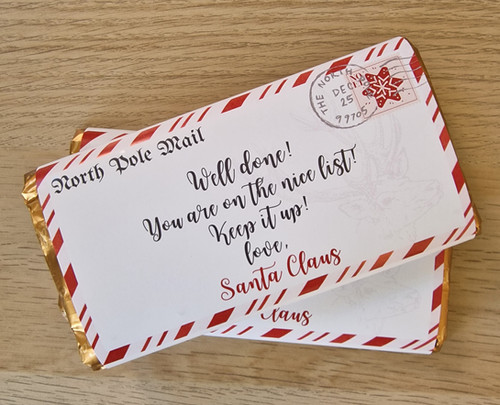 North Pole Mail
THE NORTH
DEC
25
99705
Well done!
You are on the nice list!
Keep it up!
love,
Santa Claus
Claus